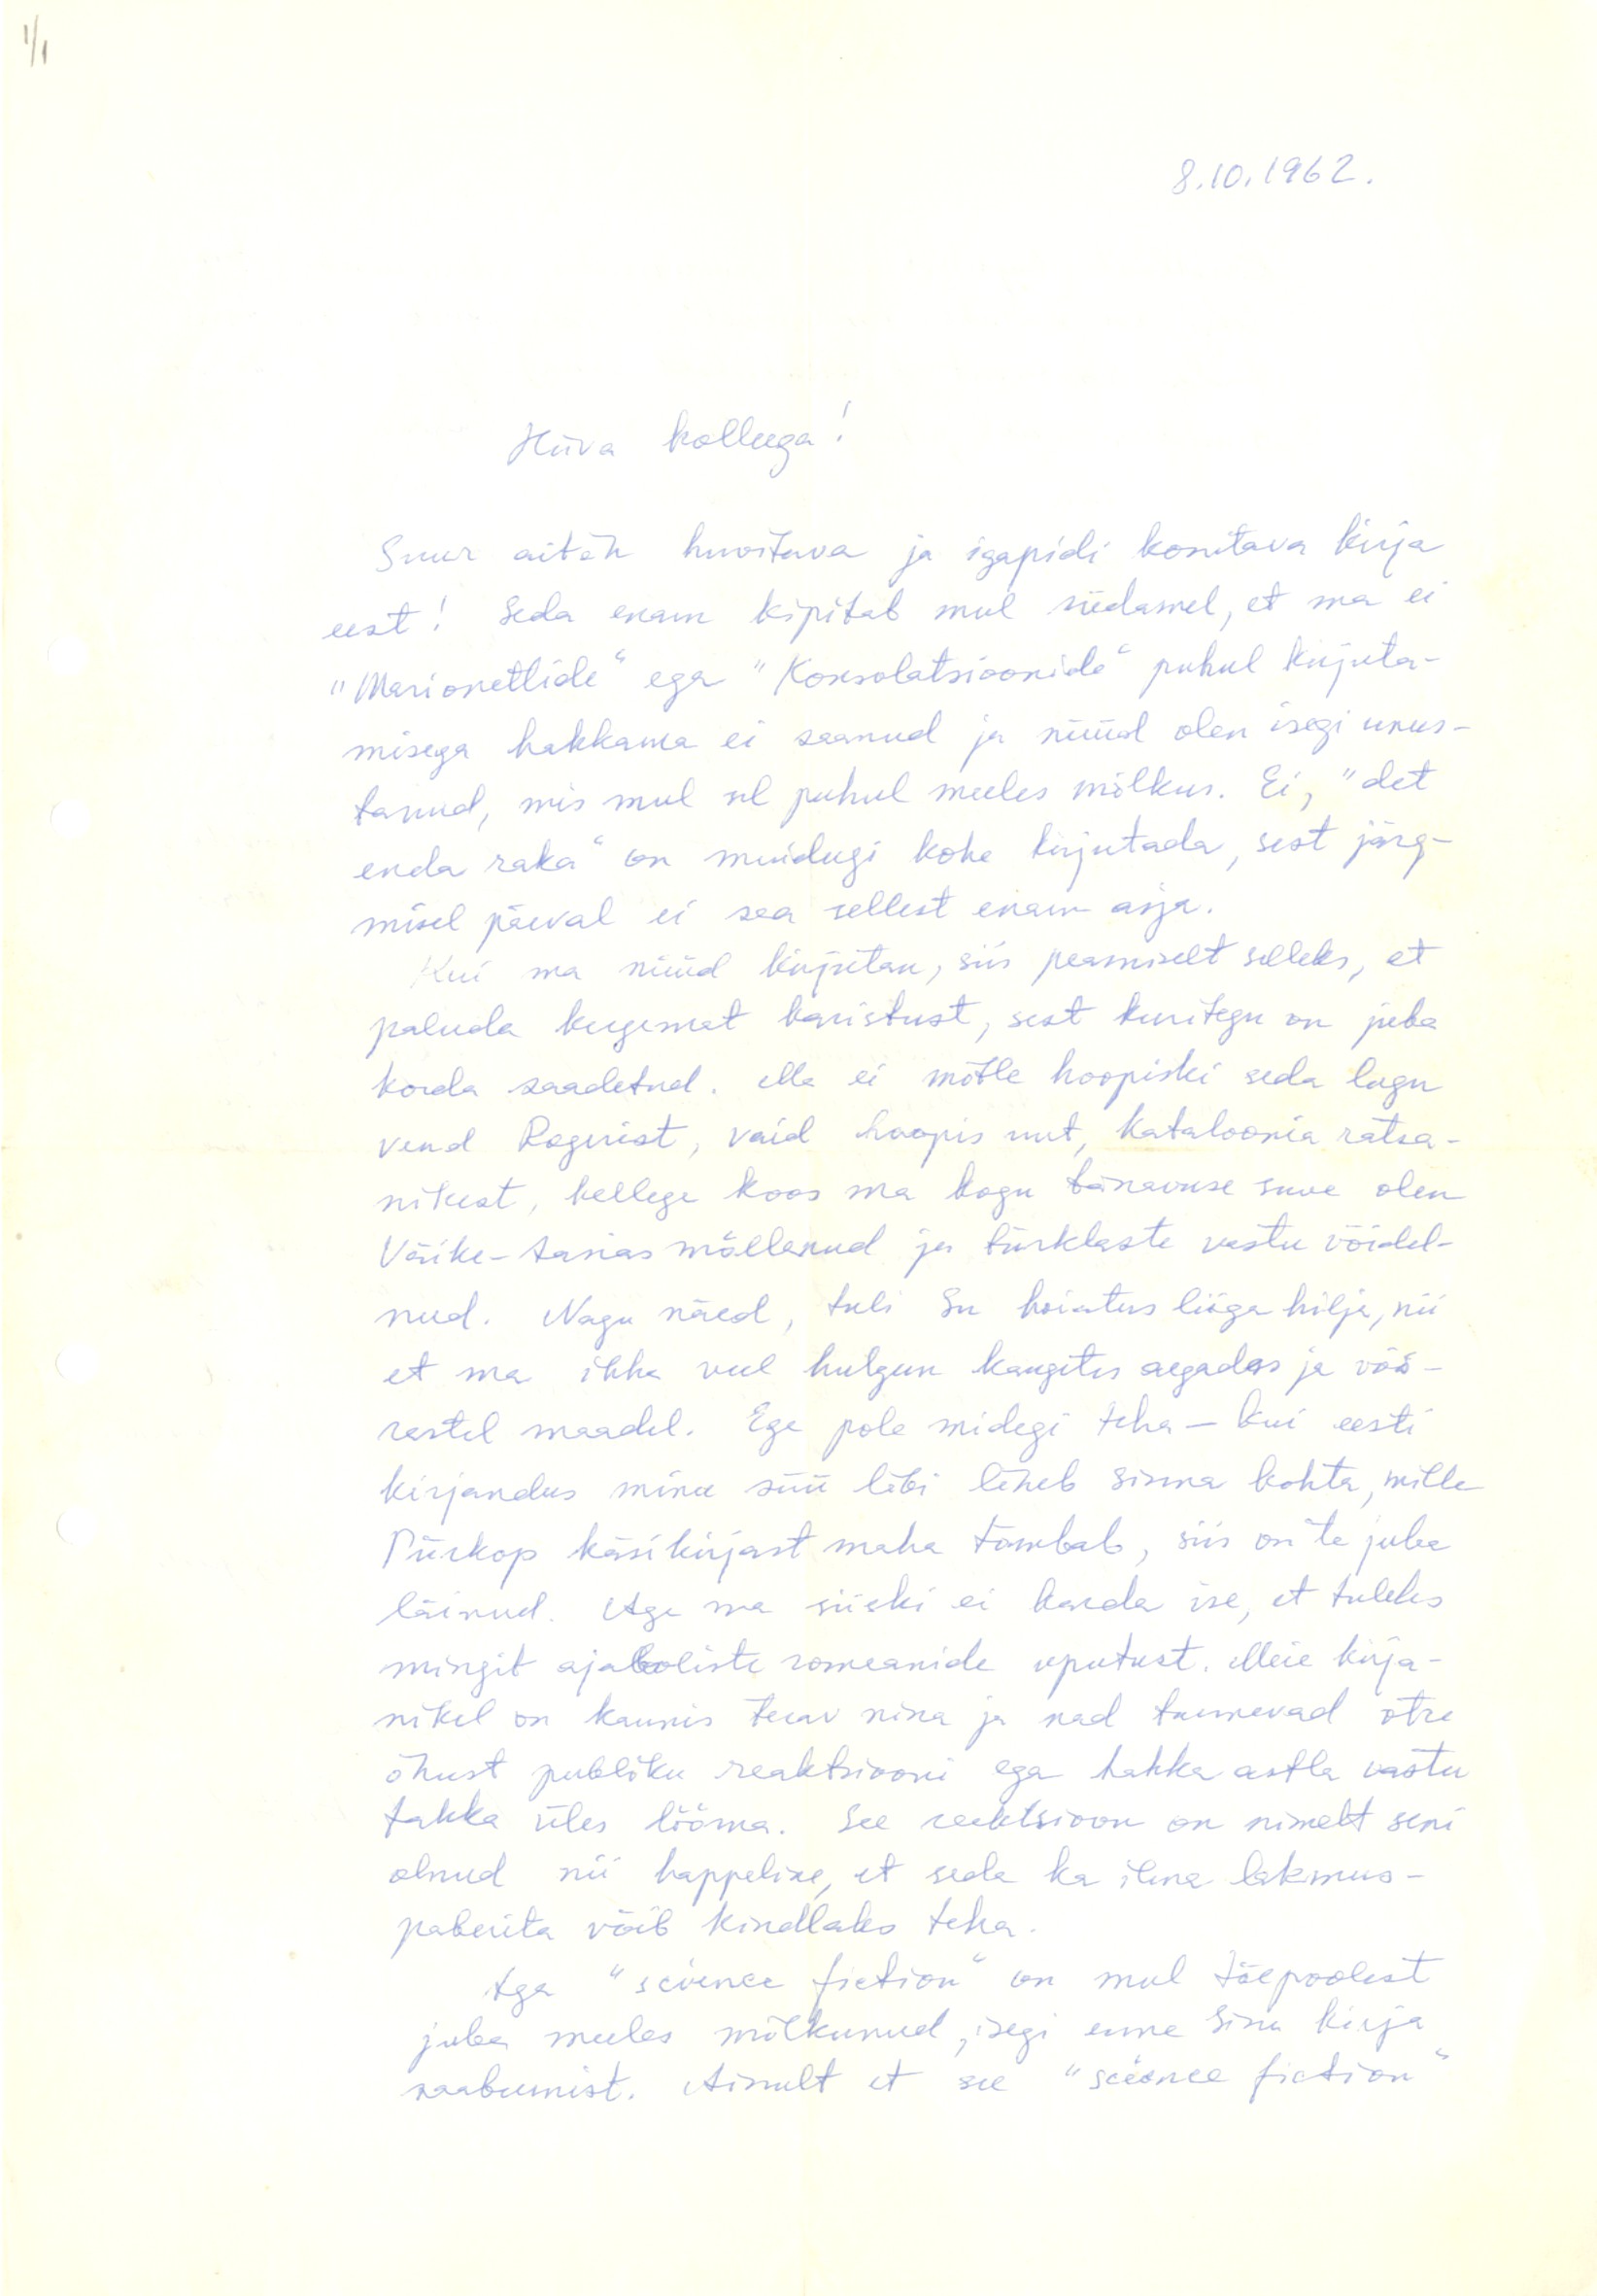 1/1
8.10.1962.
Hüva kolleega!
Suur aitäh huvitava ja igapidi kosutava kirja
eest! Seda enam kipitab mul südamel, et ma ei
"Marionettide" ega "Konsolatsioonide" puhul kirjuta-
misega hakkama ei saanud ja nüüd olen isegi unus-
tanud, mis mul sel puhul meeles mõlkus. Ei, "det
enda raka" on muidugi kohe kirjutada, sest järg-
misel päeval ei saa sellest enam asja.
Kui ma nüüd kirjutan, siis peamiselt selleks, et
paluda kergemat karistust, sest kuritegu on juba
korda saadetud. Ma ei mõtle hoopiski seda lugu
vend Rogerist, vaid hoopis uut, Kataloonia ratsa-
nikest, kellega koos ma kogu tänavuse suve olen
Väike-Aasias möllanud ja türklaste vastu võidel-
nud. Nagu näed, tuli Su hoiatus liiga hilja, nii
et ma ikka veel hulgun kaugetes aegades ja võõ-
rastel maadel. Ega pole midagi teha – kui eesti
kirjandus minu süü läbi läheb sinna kohta, mille
Piirkop käsikirjast maha tõmbab, siis on ta juba
läinud. Aga ma siiski ei karda ise, et tuleks
mingit ajalooliste romaanide uputust. Meie kirja-
nikel on kaunis terav nina ja nad tunnevad otse
õhust publiku reaktsiooni ega hakka astla vastu
takka üles lööma. See reaktsioon on nimelt seni
olnud nii happeline, et seda ka ilma lakmus-
paberita võib kindlaks teha.
Aga "science fiction" on mul tõepoolest
juba meeles mõlkunud, isegi enne Sinu kirja
saabumist. Ainult et see "science fiction"